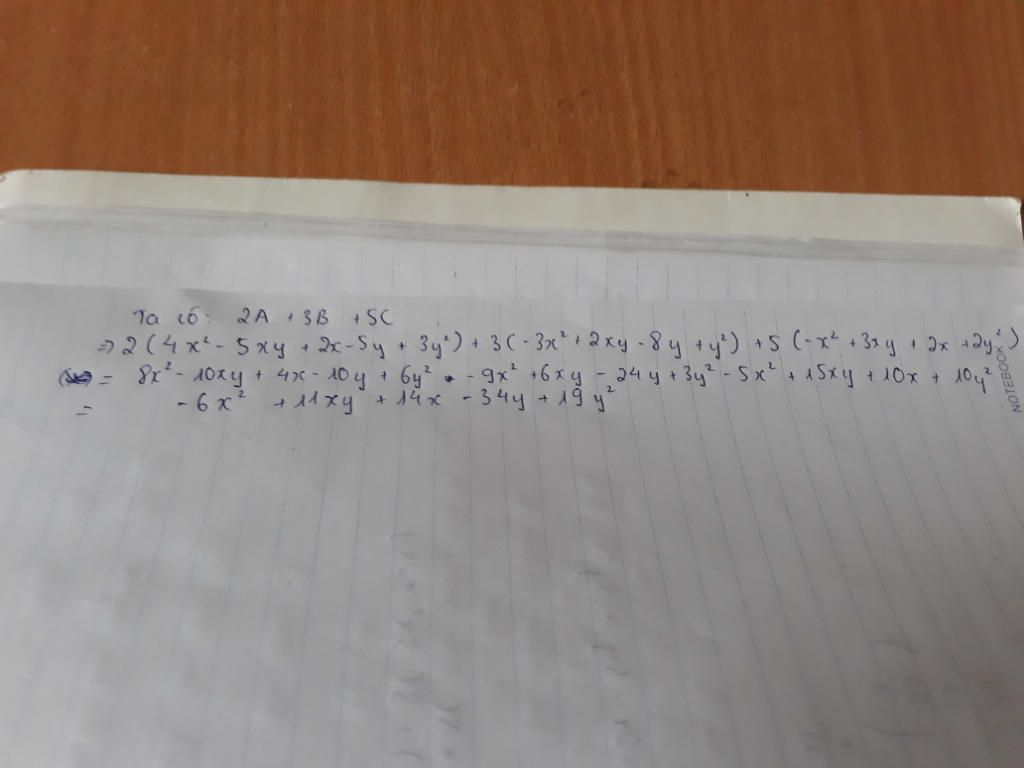 Ta có: 2A + 3B + 5C
⇒ 2 ( 4x² - 5xy + 2x - 5y + 3y² ) + 3 ( -3x² + 2xy - 8y + y² ) + 5 ( -x² + 3xy + 2x + 2y² )
= 8x² - 10xy + 4x - 10y + 6y² - 9x² + 6xy - 24y + 3y² - 5x² + 15xy + 10x + 10y²
= - 6x² + 11xy + 14x - 34y + 19y²
NOTEBOOK